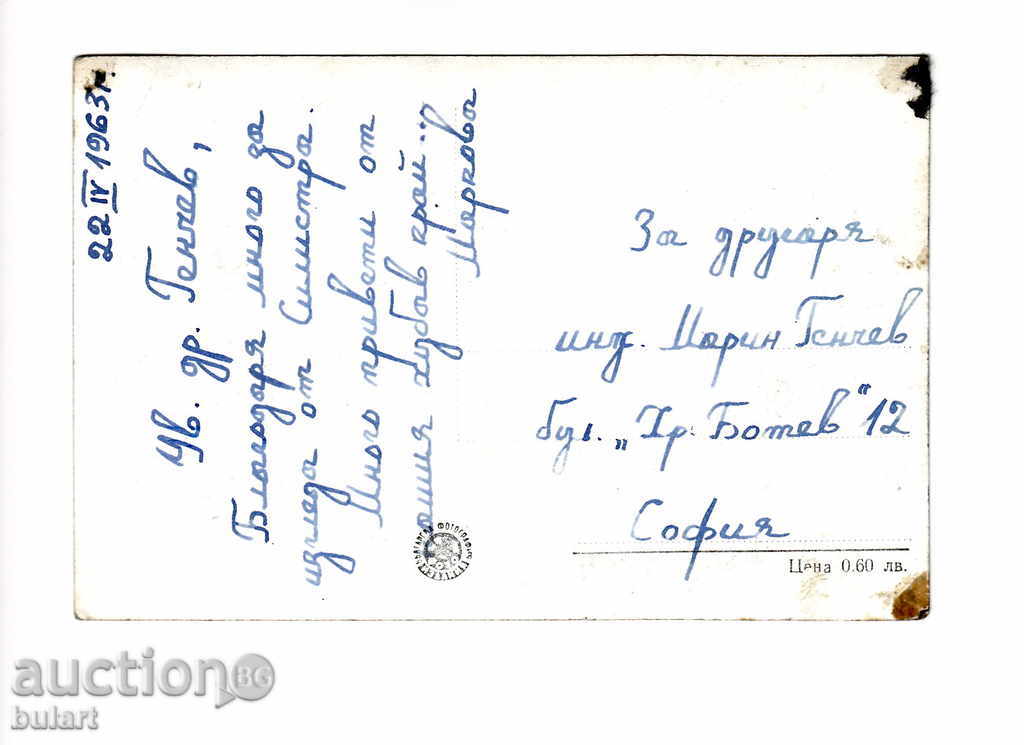 22 IV 1963 г.
Ув. др. Генчев,
Благодаря много за
изгледа от Силистра.
Много привети от
нашия хубав край...
Маркова
За другаря
инж. Марин Генчев
бул. „Хр. Ботев" 12
София
БЪЛГАРСКА ФОТОГРАФИЯ
Цена 0.60 лв.
auction BG
bulart